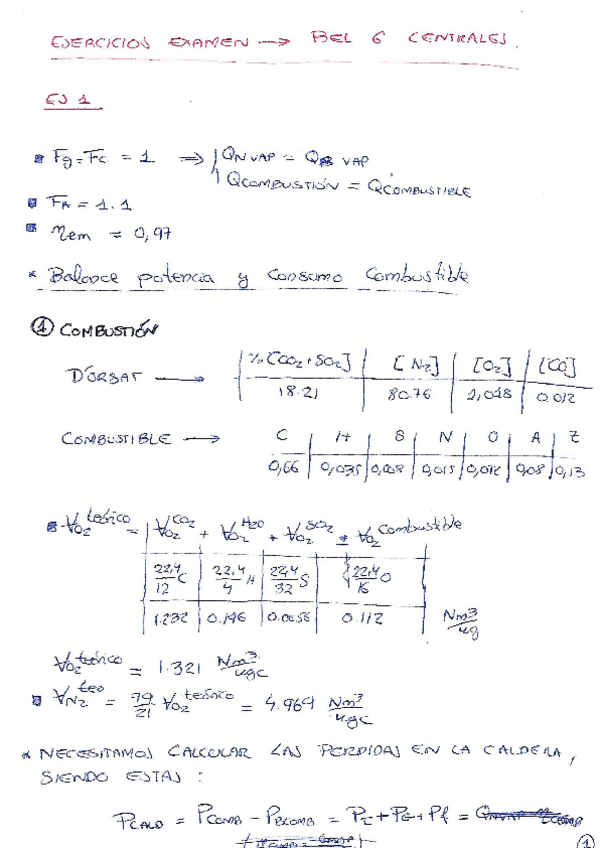 EJERCICIOS EXAMEN → BEL 6 CENTRALES.
EJ 1
Fg = Fc = 1 ⇒ QN VAP = QB VAP
QCOMBUSTIÓN = QCOMBUSTIBLE
FA = 1.1
ηem = 0,97
* Balance potencia y consumo combustible
① COMBUSTIÓN
D'ORSAT → % [CO2 + SO2] | [N2] | [O2] | [CO]
18.21 | 80.76 | 1,018 | 0.012
COMBUSTIBLE → C | H | S | N | O | A | Z
0,66 | 0,035 | 0,008 | 0,015 | 0,072 | 0,08 | 0,13
VO2 teórico = VO2 CO2 + VO2 H2O + VO2 SO2 ± VO2 Combustible
22,4/12 C | 22.4/4 H | 22,4/32 S | 22,4/16 O
1.232 | 0.196 | 0.0056 | 0.112 Nm3/kg
VO2 teórico = 1.321 Nm3/kgc
VN2 teo = 79/21 VO2 teórico = 4.969 Nm3/kgc
* NECESITAMOS CALCULAR LAS PERDIDAS EN LA CALDERA,
SIENDO ESTAS :
PCALD = PCOMB - PBCOMB = PI + PG + Pf =
①